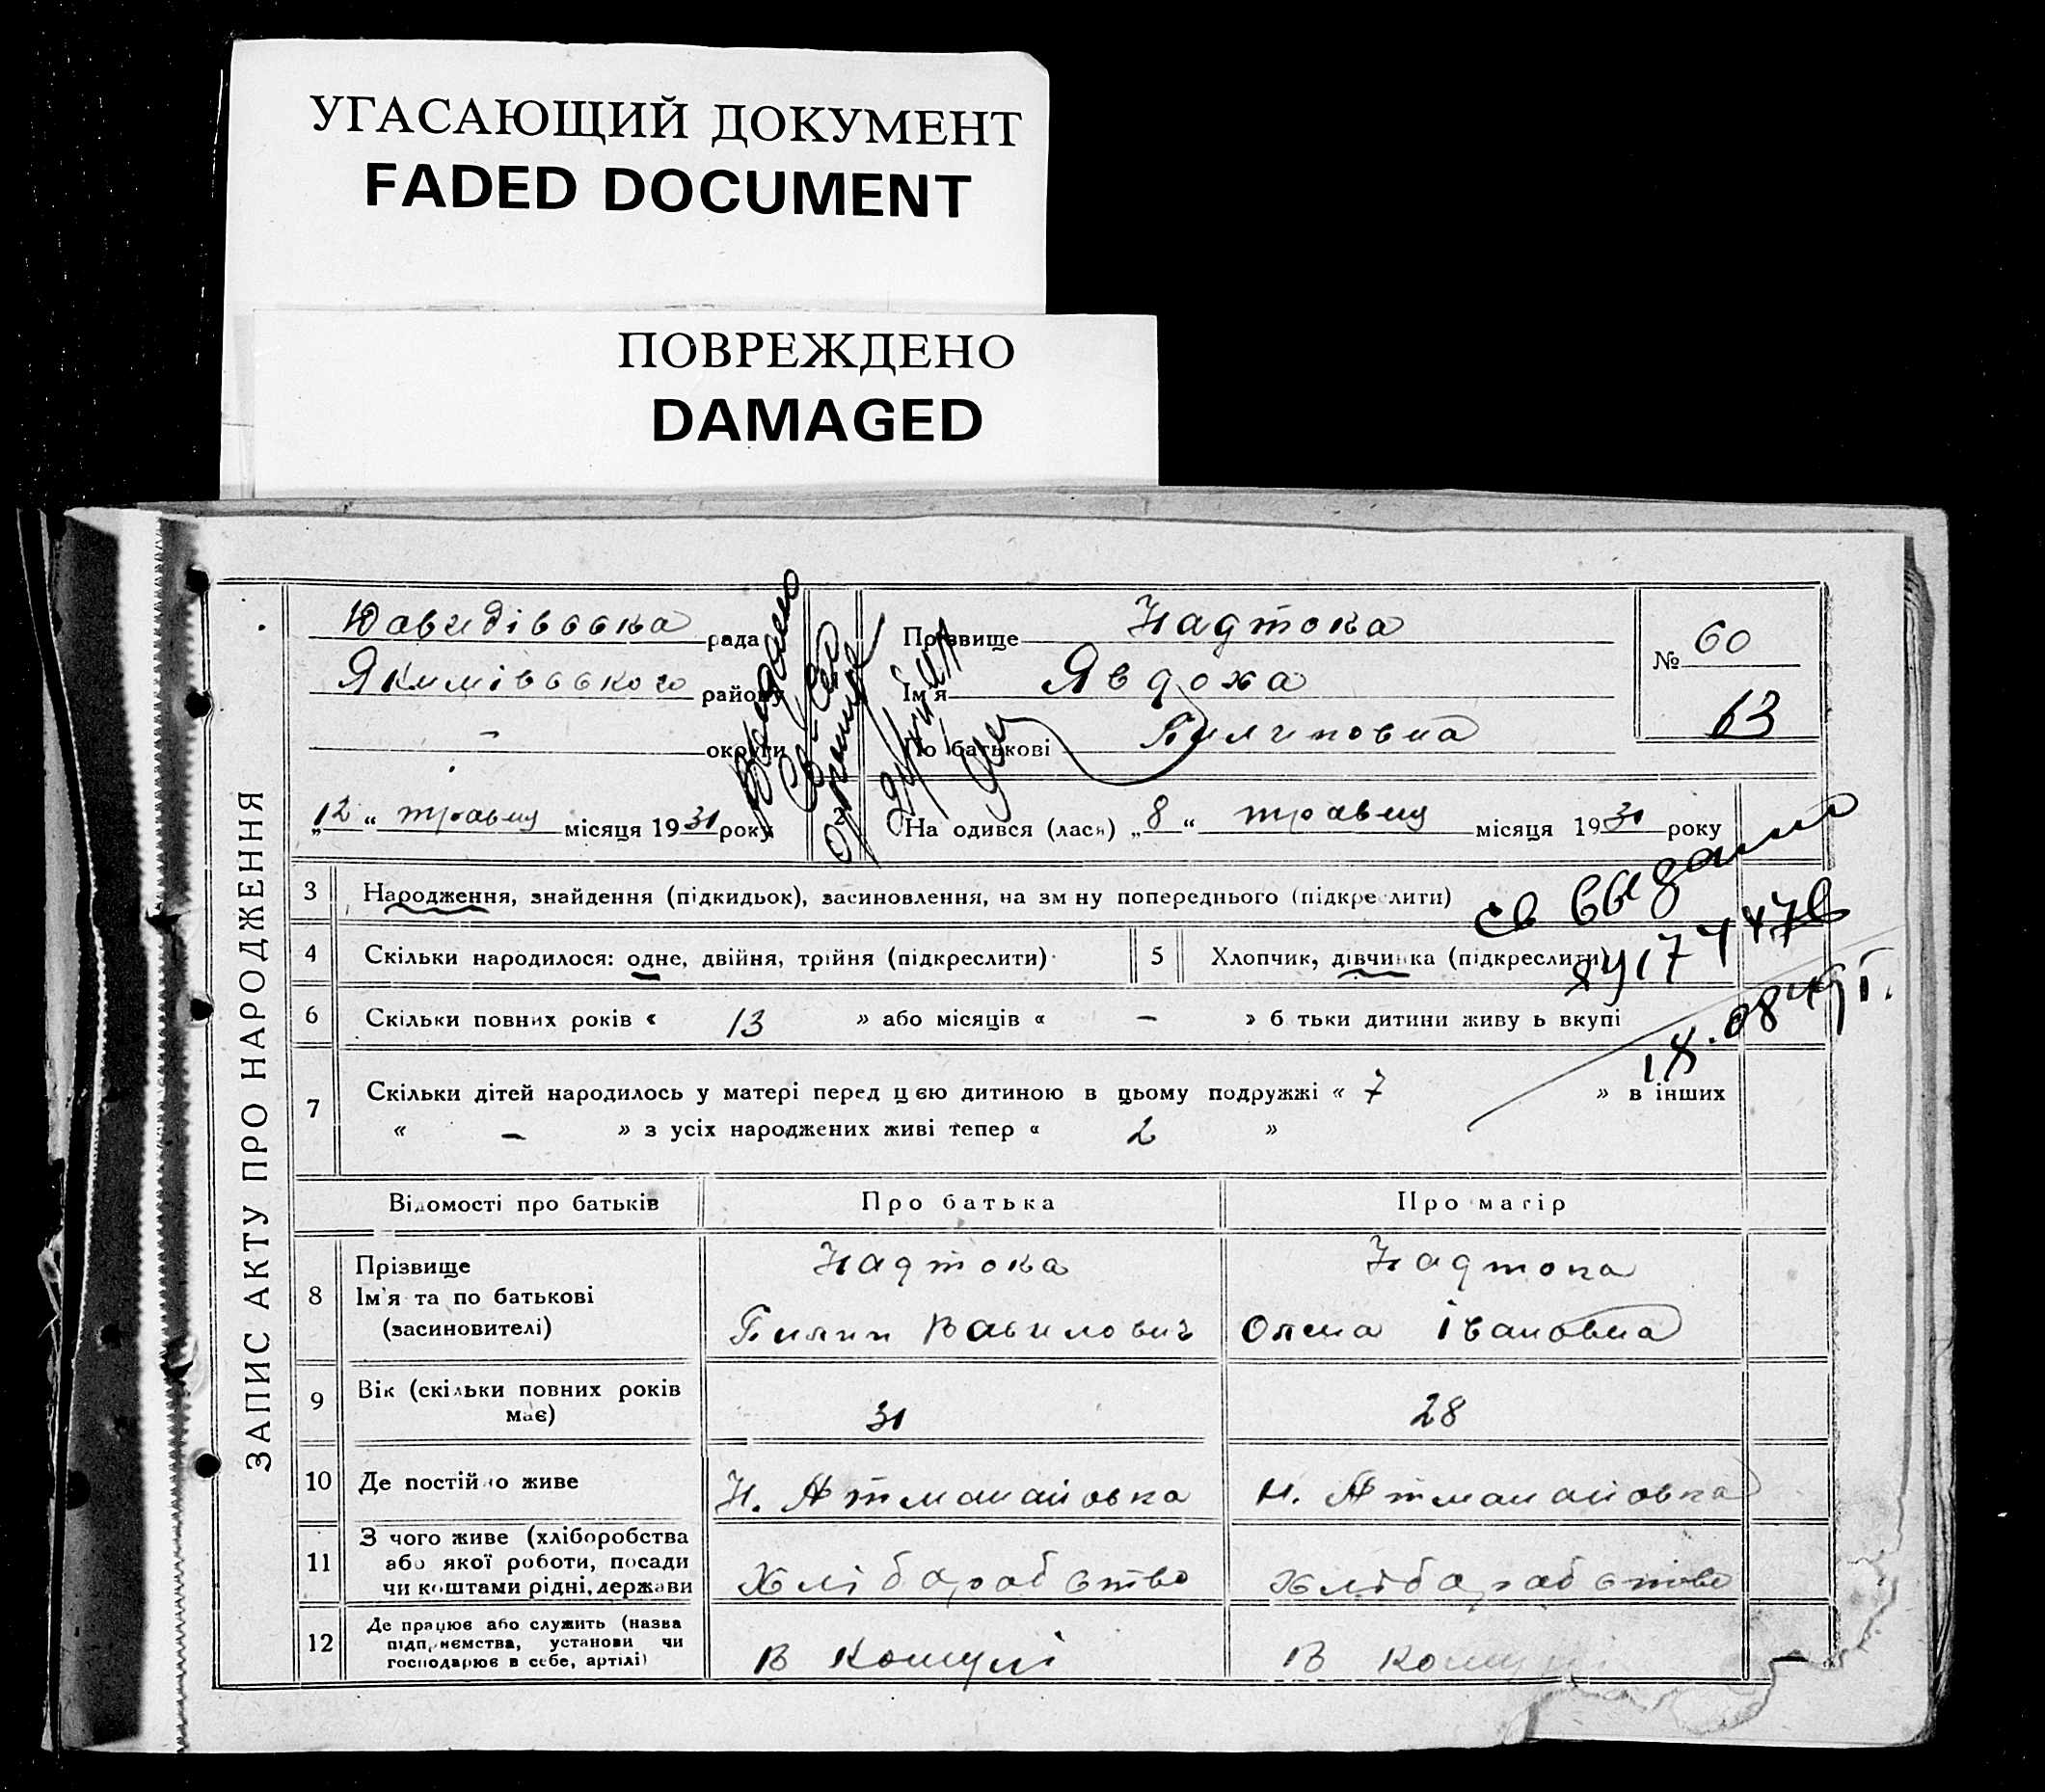 УГАСАЮЩИЙ ДОКУМЕНТ
FADED DOCUMENT
ПОВРЕЖДЕНО
DAMAGED
ЗАПИС АКТУ ПРО НАРОДЖЕННЯ
Давидівська рада
Якимівського району
- округи
„12“ травня місяця 1931 року
Прізвище Надтока
Ім'я Явдоха
По батькові Пилиповна
№ 60
63
На одився (лася) „8“ травня місяця 1931 року
3 Народження, знайдення (підкидьок), засиновлення, на зм ну попереднього (підкреслити)
св выдано
4 Скільки народилося: одне, двійня, трійня (підкреслити)
5 Хлопчик, дівчинка (підкреслити)
6 Скільки повних років « 13 » або місяців « – » б тьки дитини живу ь вкупі
7 Скільки дітей народилось у матері перед цією дитиною в цьому подружжі « 7 » в інших
« – » з усіх народжених живі тепер « 2 »
Відомості про батьків Про батька Про матір
8 Прізвище
Ім'я та по батькові
(засиновителі)
Надтока
Пилип Вавилович
Надтока
Олена Івановна
9 Вік (скільки повних років
має)
31
28
10 Де постійно живе
Н. Атманайовка
Н. Атманайовка
11 З чого живе (хліборобства
або якої роботи, посади
чи коштами рідні, держави
Хлібарабство
Хлібарабство
12 Де працює або служить (назва
підприємства, установи чи
господарює в себе, артілі)
В комуні
В комуні